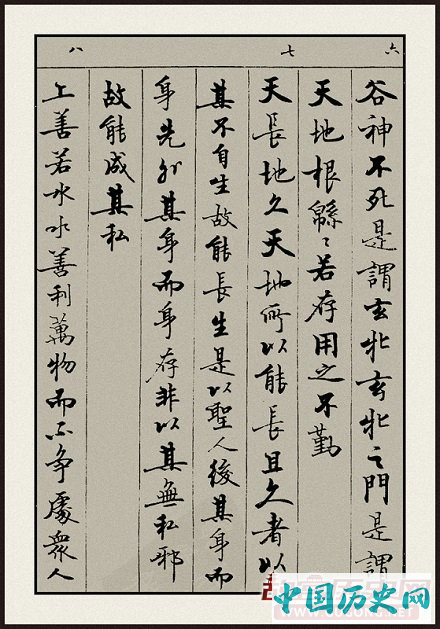 六
谷神不死是謂玄牝玄牝之門是謂
天地根緜〻若存用之不勤
七
天長地久天地所以能長且久者以
其不自生故能長生是以聖人後其身而
身先外其身而身存非以其無私邪
故能成其私
八
上善若水水善利萬物而不争處衆人
中国历史网